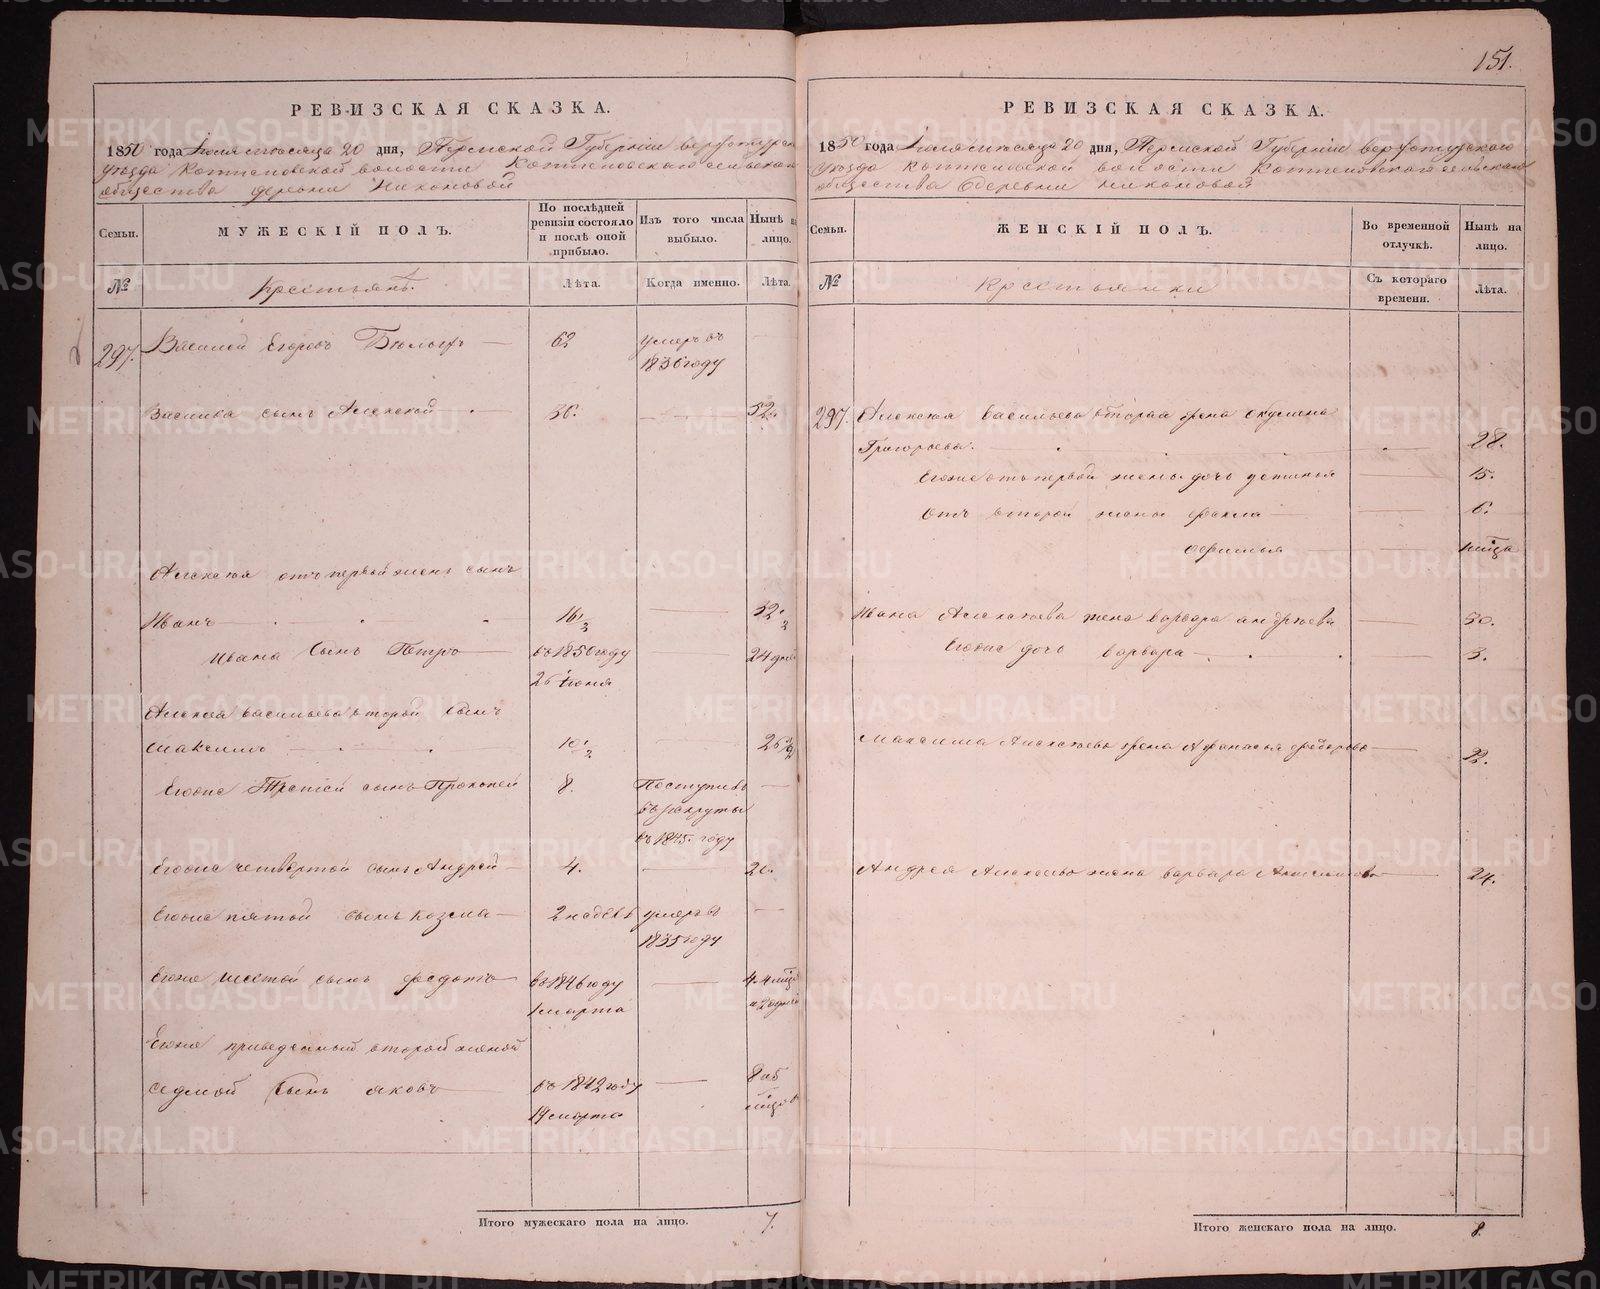 151.
РЕВИЗСКАЯ СКАЗКА.
1850 года Іюля мѣсяца 20 дня, Пермской Губерніи верхотурска
уѣзда Коптеловской волости Коптеловскаго сельскаго
общества деревни Никоновой
Семьи.
МУЖЕСКІЙ ПОЛЪ.
По послѣдней ревизіи состояло и послѣ оной прибыло.
Изъ того числа выбыло.
Нынѣ на лицо.
№
Крестьянъ.
Лѣта.
Когда именно.
Лѣта.
297. Василей Егоровъ — 62 умеръ въ —
1836 году
Василья сынъ Алексѣй — 36. — 52.
Алексѣя отъ первой жены сынъ
Иванъ — 16 1/2 — 32 1/2
Ивана Сынъ Петръ — въ 1850 году — 24 дней
26 Іюня
Алексѣя васильева второй Сынъ
Максимъ — 10 1/2 — 26 1/2
Егоже Третій сынъ Прокопей 8. Поступилъ —
въ рекруты
въ 1845. году
Егоже четвертой сынъ Андрей — 4. — 20.
Егоже пятой сынъ козма — 2 недѣль умеръ въ —
1835 году
Егоже шестой сынъ федотъ — въ 1846 году — 4. 4 мѣсца
1 марта и 20 дней
Егоже приведенный второй женой
седмой Сынъ яковъ — въ 1842 году — 8 лѣ
14 марта мѣсцов
Итого мужескаго пола на лицо. 7.
РЕВИЗСКАЯ СКАЗКА.
1850 года Іюля мѣсяца 20 дня, Пермской Губерніи верхотурскаго
уѣзда Коптеловской волости Коптеловскаго сельскаго
общества деревни Никоновой
Семьи.
ЖЕНСКІЙ ПОЛЪ.
Во временной отлучкѣ.
Нынѣ на лицо.
№
Крестьянки
Съ котораго времени.
Лѣта.
297. Алексѣя васильева вторая жена окулина
Григорьева. — 28.
Егоже отъ первой жены дочь устинья — 15.
отъ второй жены фекла — 6.
офимья — мѣсца
Ивана Алексѣева жена варвара андреева — 30.
Егоже дочь варвара — 3.
Максима Алексѣева жена Афанасья федорова — 22.
Андрея Алексѣева жена варвара — 24.
Итого женскаго пола на лицо. 8.
METRIKI.GASO-URAL.RU